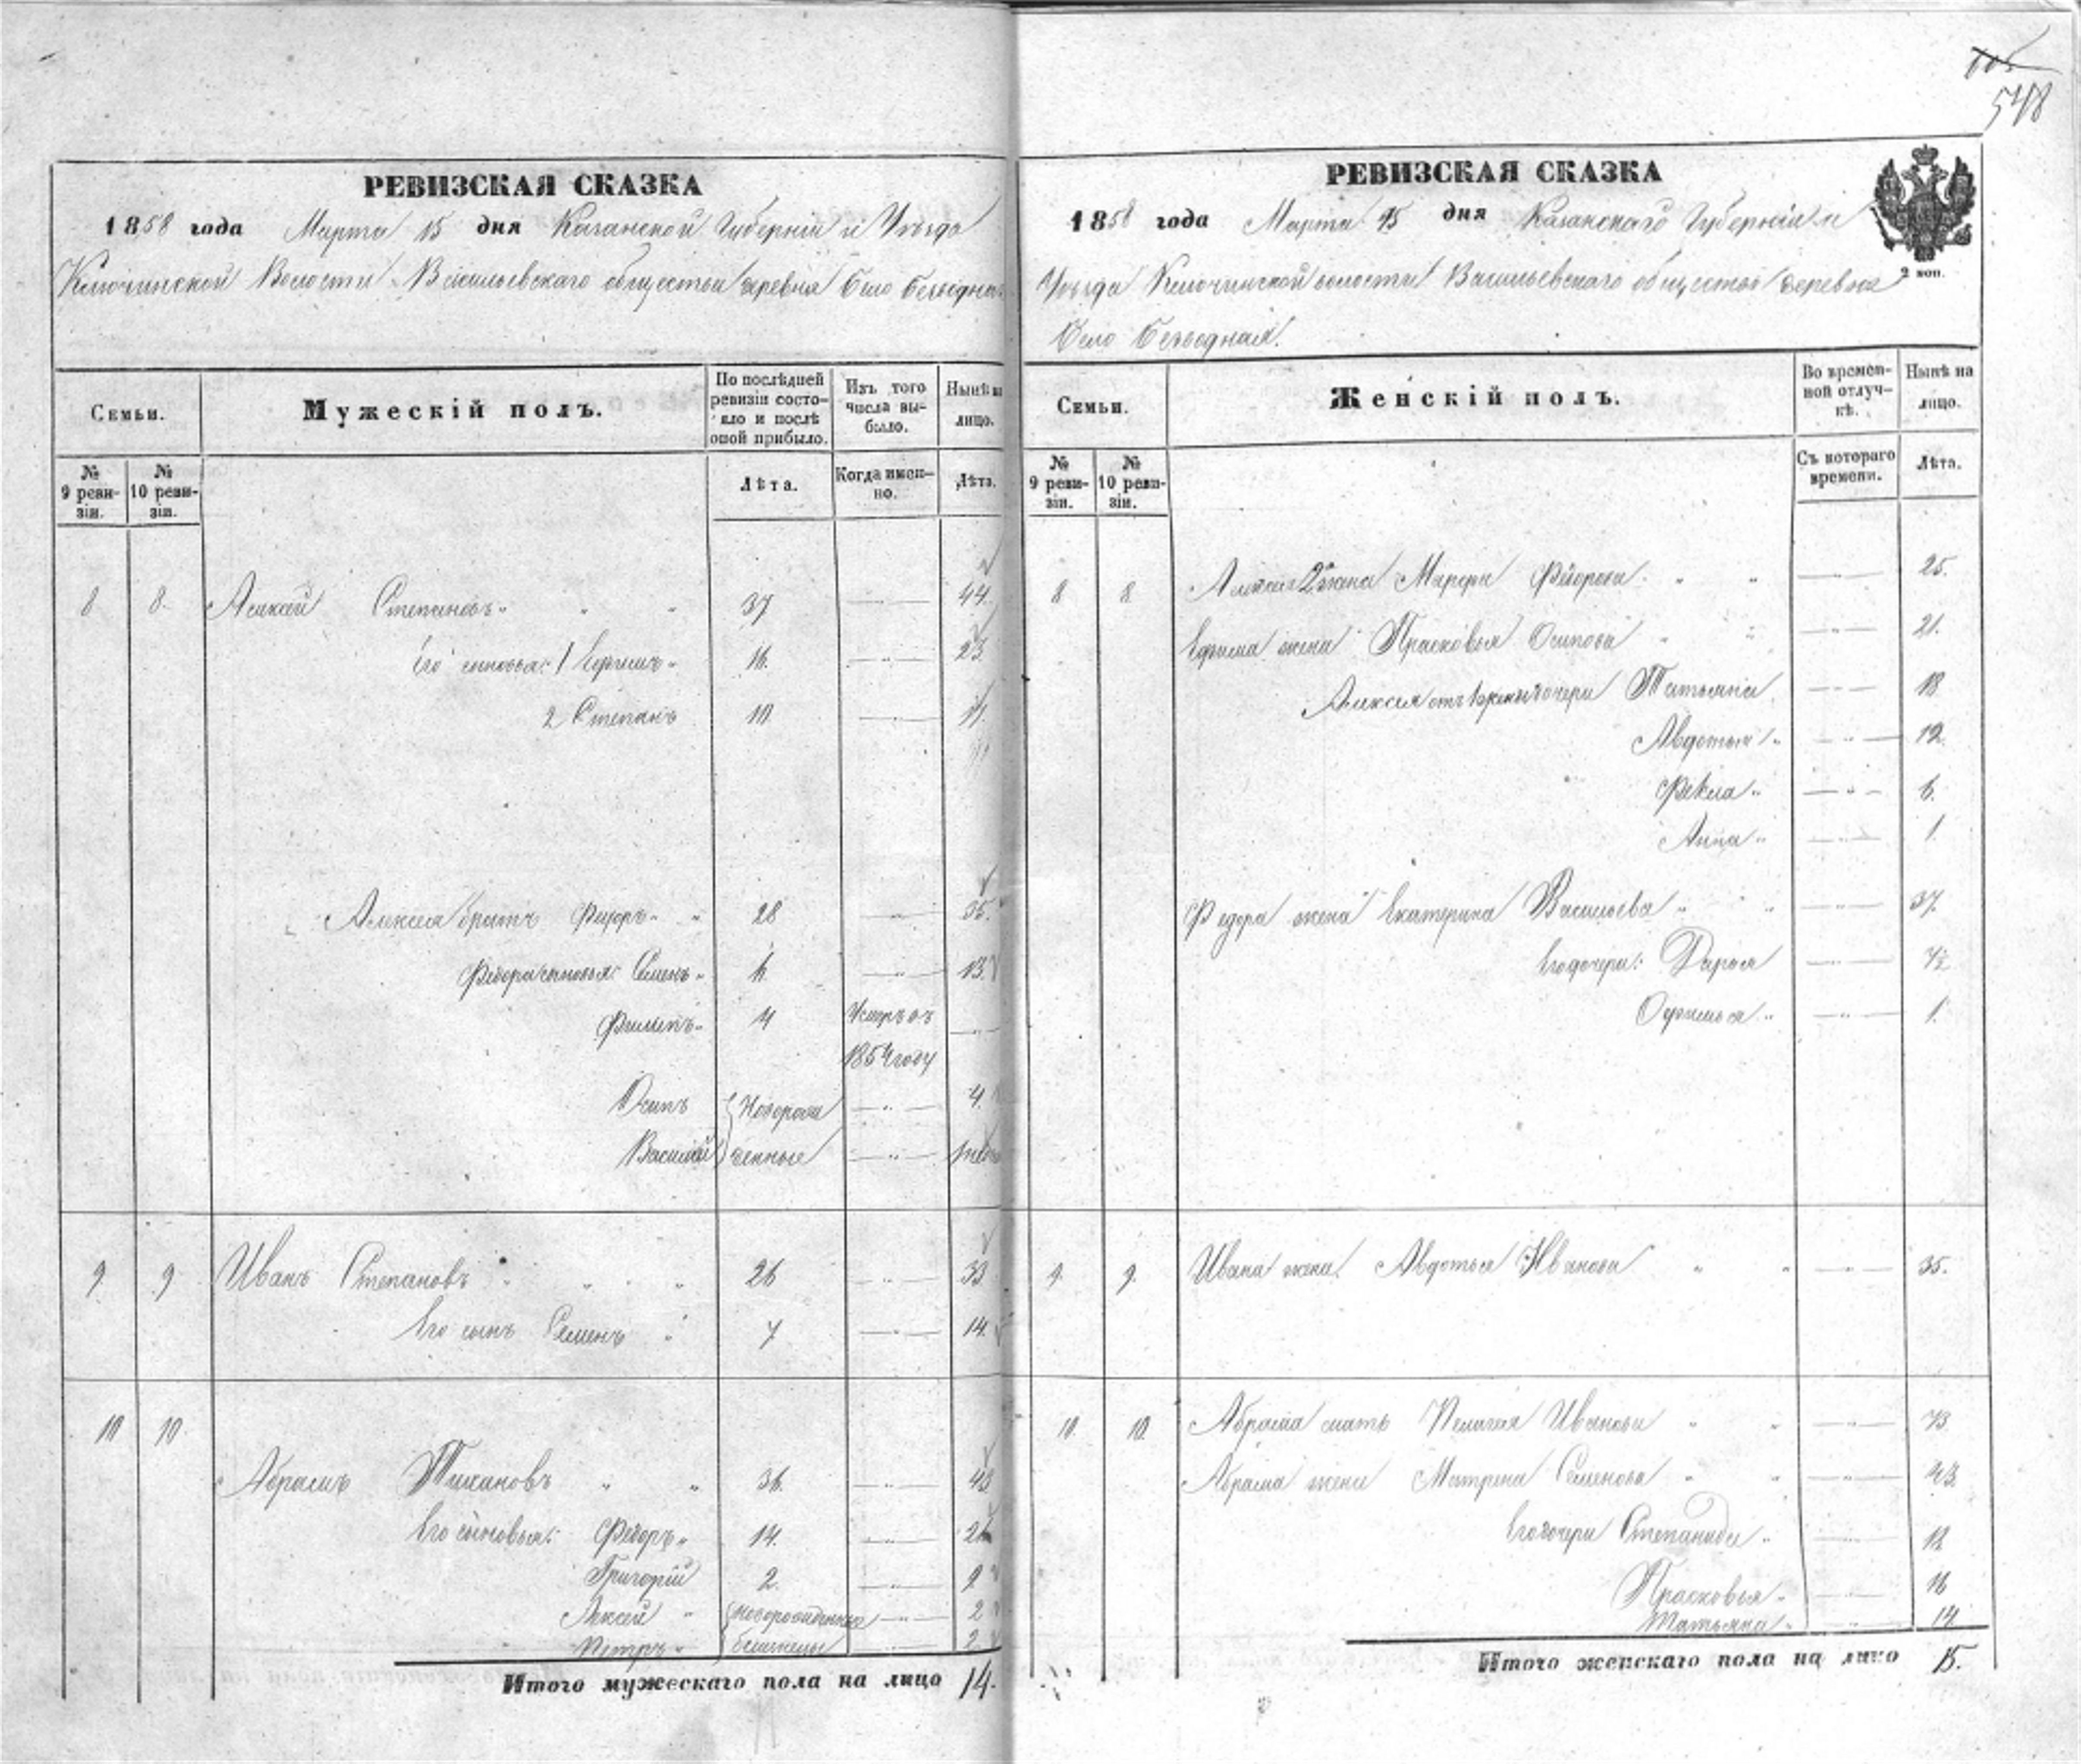 548
РЕВИЗСКАЯ СКАЗКА
1858 года Марта 15 дня Казанской Губерніи и Уѣзда
Ключинской Волости Васильевскаго общества деревня
Семьи.
Мужескій полъ.
По послѣдней ревизіи состояло и послѣ оной прибыло.
Изъ того числа выбыло.
Нынѣ на лицо.
№ 9 ревизіи.
№ 10 ревизіи.
Лѣта.
Когда именно.
Лѣта.
8 8. Алексей Степановъ 37 44.
Его сыновья: 1 Ефимъ 16. 23
2 Степанъ 10.
Алексея братъ Федоръ 28 35.
Федора сыновья: Семенъ 6 13
Филипъ 4 Умеръ въ
1854 году
Осипъ Новорож 4.
Василий денные
9 9 Иванъ Степановъ 26 33
Его сынъ Семенъ 7 14.
10 10
Абрамъ Тихановъ 36. 43
Его сыновья: Федоръ 14. 21
Григорій 2. 9
Алексей Новорожденные 2
Петръ близнецы 2
Итого мужескаго пола на лицо 14.
РЕВИЗСКАЯ СКАЗКА
1858 года Марта 15 дня Казанскаго Губерніи и
2 коп.
Уѣзда Ключинской волости Васильевскаго общества деревня
Семьи.
Женскій полъ.
Во временной отлучкѣ.
Нынѣ на лицо.
№ 9 ревизіи.
№ 10 ревизіи.
Съ котораго времени.
Лѣта.
8 8 Алексея 2 жена Марфа Федорова 25.
Ефима жена Прасковья Осипова 21.
Алексея отъ 1 жены дочери Татьяна 18
Авдотья 12.
Фекла 6.
Анна 1
Федора жена Екатерина Васильева 37.
Его дочери: Дарья 7½
Офимья 1.
9. 9. Ивана жена Авдотья Иванова 35.
10. 10. Абрама мать Пелагея Иванова 73
Абрама жена Матрена Семенова 43.
Его дочери Степанида
Прасковья 16
Татьяна 14
Итого женскаго пола на лицо 15.